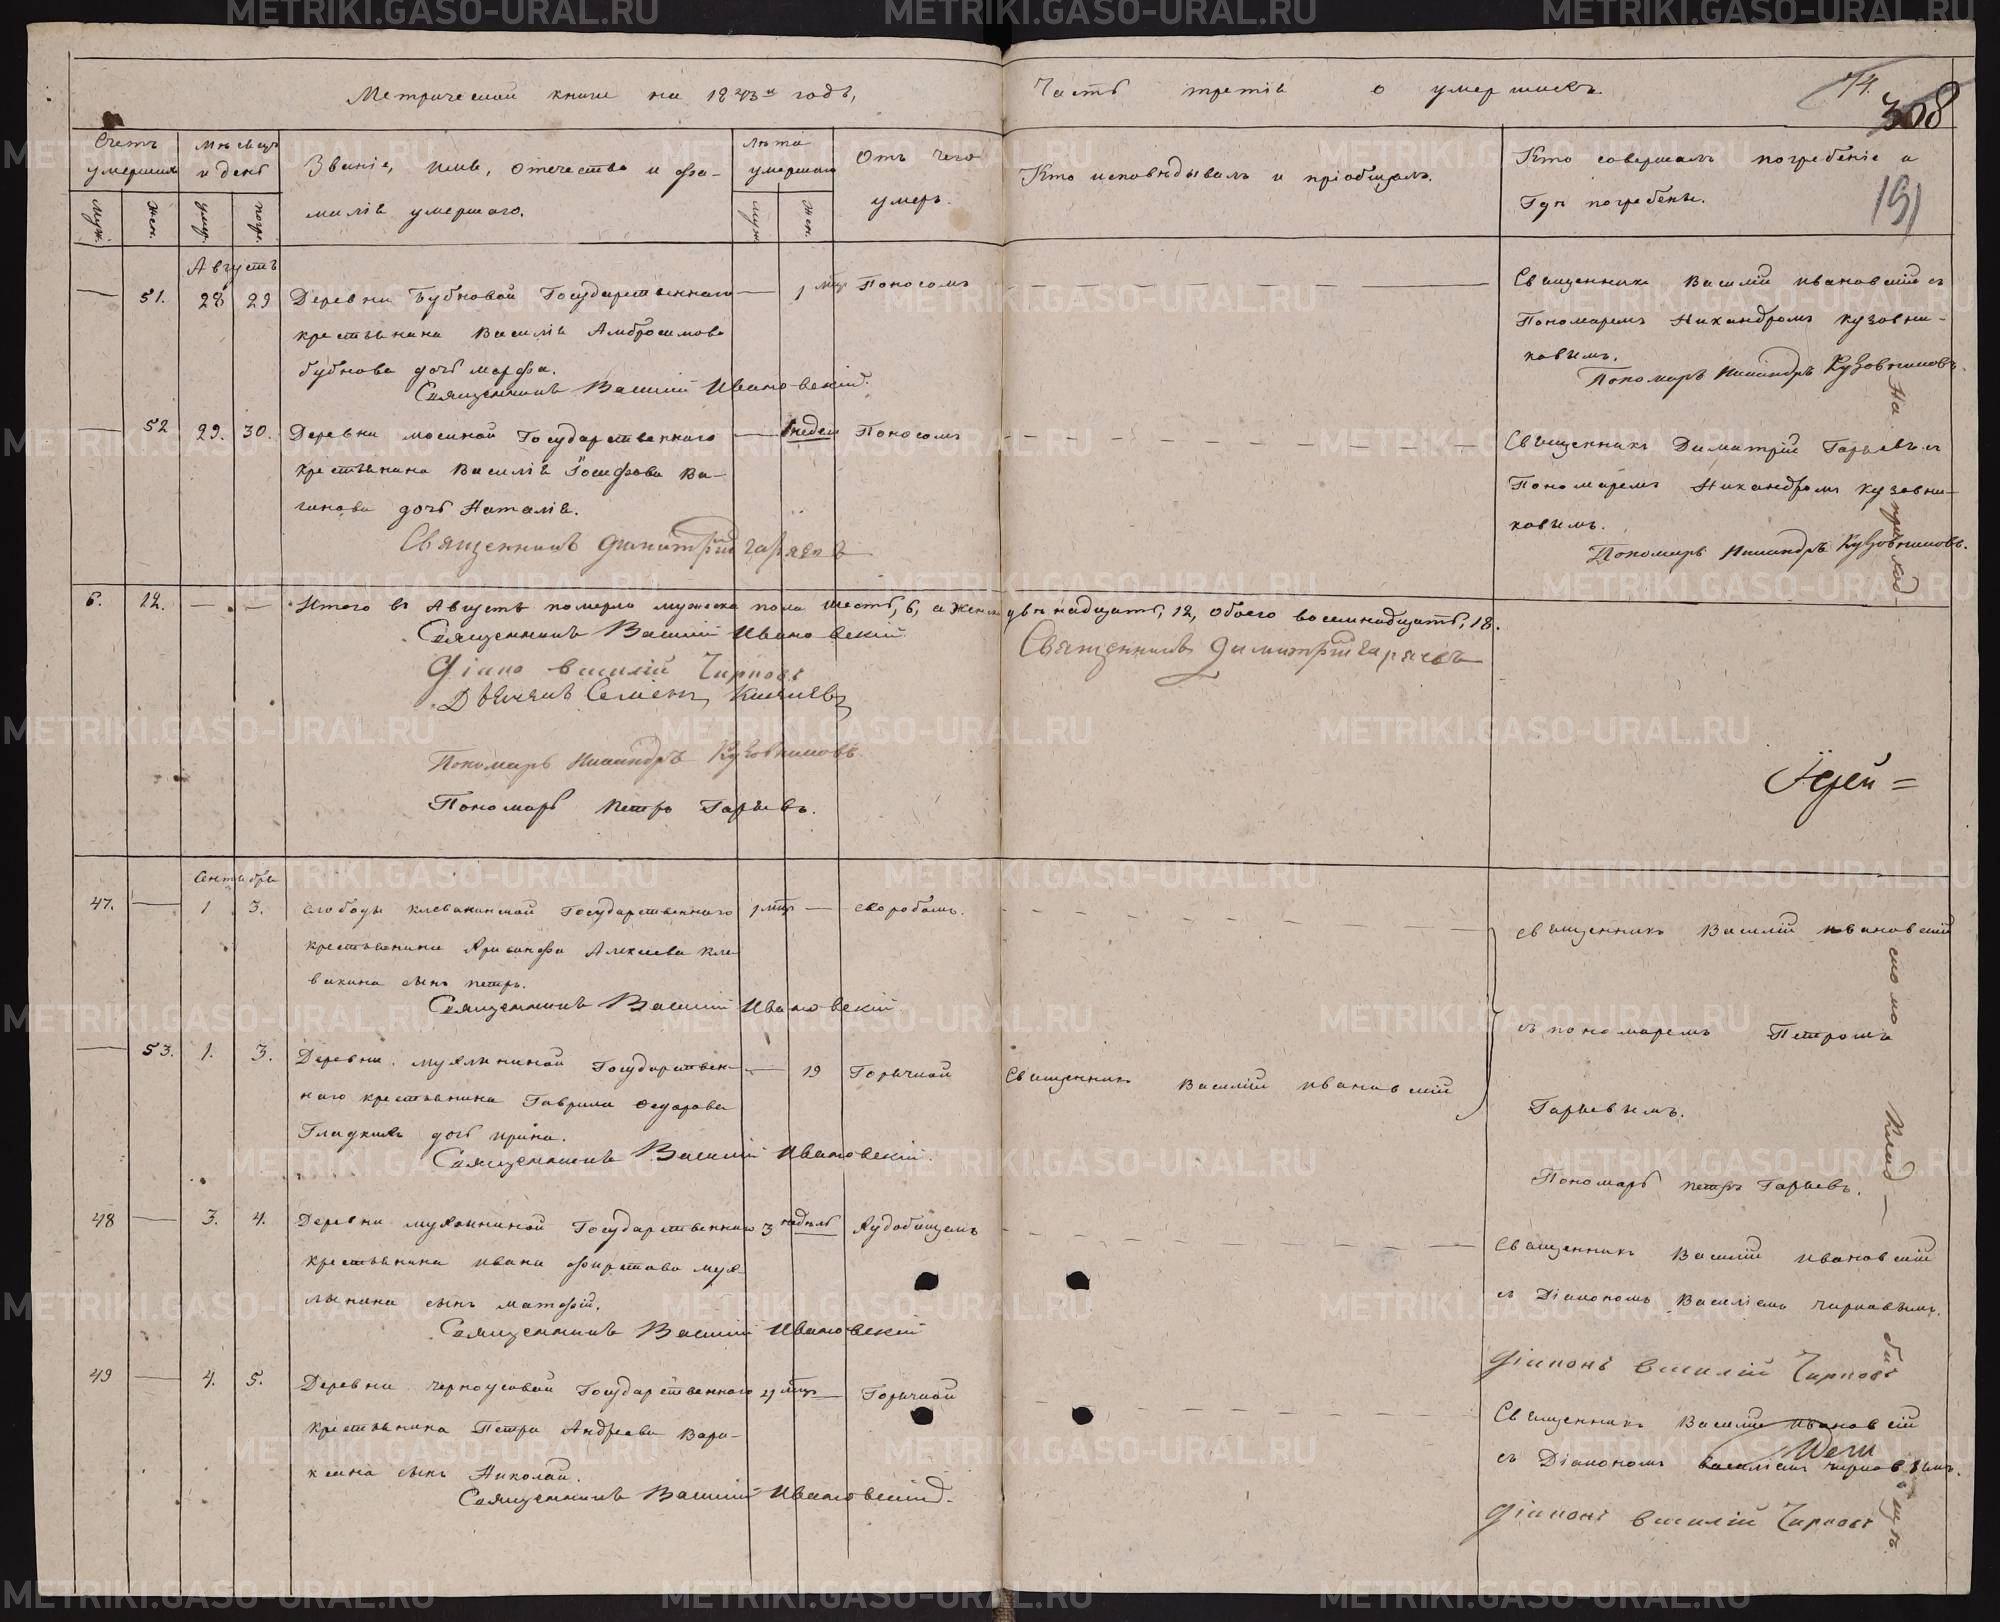 Метрической книги на 1843й годъ,
Часть третія о умершихъ.
74.
308
191
Счетъ умершихъ
Муж.
Жен.
Мѣсяцъ и день
умер.
погр.
Званіе, имя, отечество и фа-
милія умершаго.
Лѣта умершаго
Муж.
Жен.
Отъ чего
умеръ.
Кто исповѣдывалъ и пріобщалъ.
Кто совершалъ погребеніе и
Гдѣ погребены.
Августъ
51. 28 29 Деревни Бубновой Государственнаго 1 мцъ Поносомъ
крестьянина Василія Амбросимова
бубнова дочь марфа.
Священникъ Василій Ивановскій.
Священникъ Василій ивановскій съ
Пономаремъ Никандромъ кузовни-
ковымъ.
Пономарь Никандръ Кузовниковъ.
52 29. 30. Деревни мосиной Государственного 1 недел Поносомъ
крестьянина Василія Іосифова Ва-
ганова дочь Наталія.
Священникъ Димитрій Гаряевъ
Священникъ Димитрій Гаряевъ съ
Пономаремъ Никандромъ кузовни-
ковымъ.
Пономарь Никандръ Кузовниковъ.
6. 12. Итого въ Августѣ померло мужеска пола шесть, 6, а женска двѣнадцать, 12, обоего восемнадцать, 18.
Священникъ Василій Ивановскій
Священникъ Димитрій Гаряевъ
Діаконъ Василій Чирковъ
Дьячекъ Семенъ Киселевъ
Пономарь Никандръ Кузовниковъ
Пономарь Петръ Гаряевъ.
Іерей =
Сентябрь
47. 1 3. слободы клевакинской Государственнаго 1 мцъ скоробомъ.
крестьянина Ксенофа Алексеева кле-
вакина сынъ петръ.
Священникъ Василій Ивановскій
священникъ Василій ивановскій
53. 1. 3. Деревни мухлыниной Государствен- 19 Горячкой Священникъ Василій ивановскій
наго крестьянина Гаврила Федорова
Гладкихъ дочь ирина.
Священникъ Василій Ивановскій.
съ пономаремъ Петромъ
Гаряевымъ.
Пономарь петръ Гаряевъ.
48 3. 4. Деревни мухлыниной Государственнаго 3 недѣль Худобищемъ
крестьянина ивана фирстова мух-
лынина сынъ матфій.
Священникъ Василій Ивановскій
Священникъ Василій ивановскій
съ Діакономъ Василіемъ чирковымъ.
Діаконъ Василій Чирковъ
49 4. 5. Деревни черноусовой Государственнаго 4 мцъ Горячкой
крестьянина Петра Андреева Вара-
ксина сынъ Николай.
Священникъ Василій Ивановскій.
Священникъ Василій ивановскій
съ Діакономъ василіемъ чирковымъ.
Діаконъ Василій Чирковъ
На
приход
ско мо
Клад-
би
щѣ.